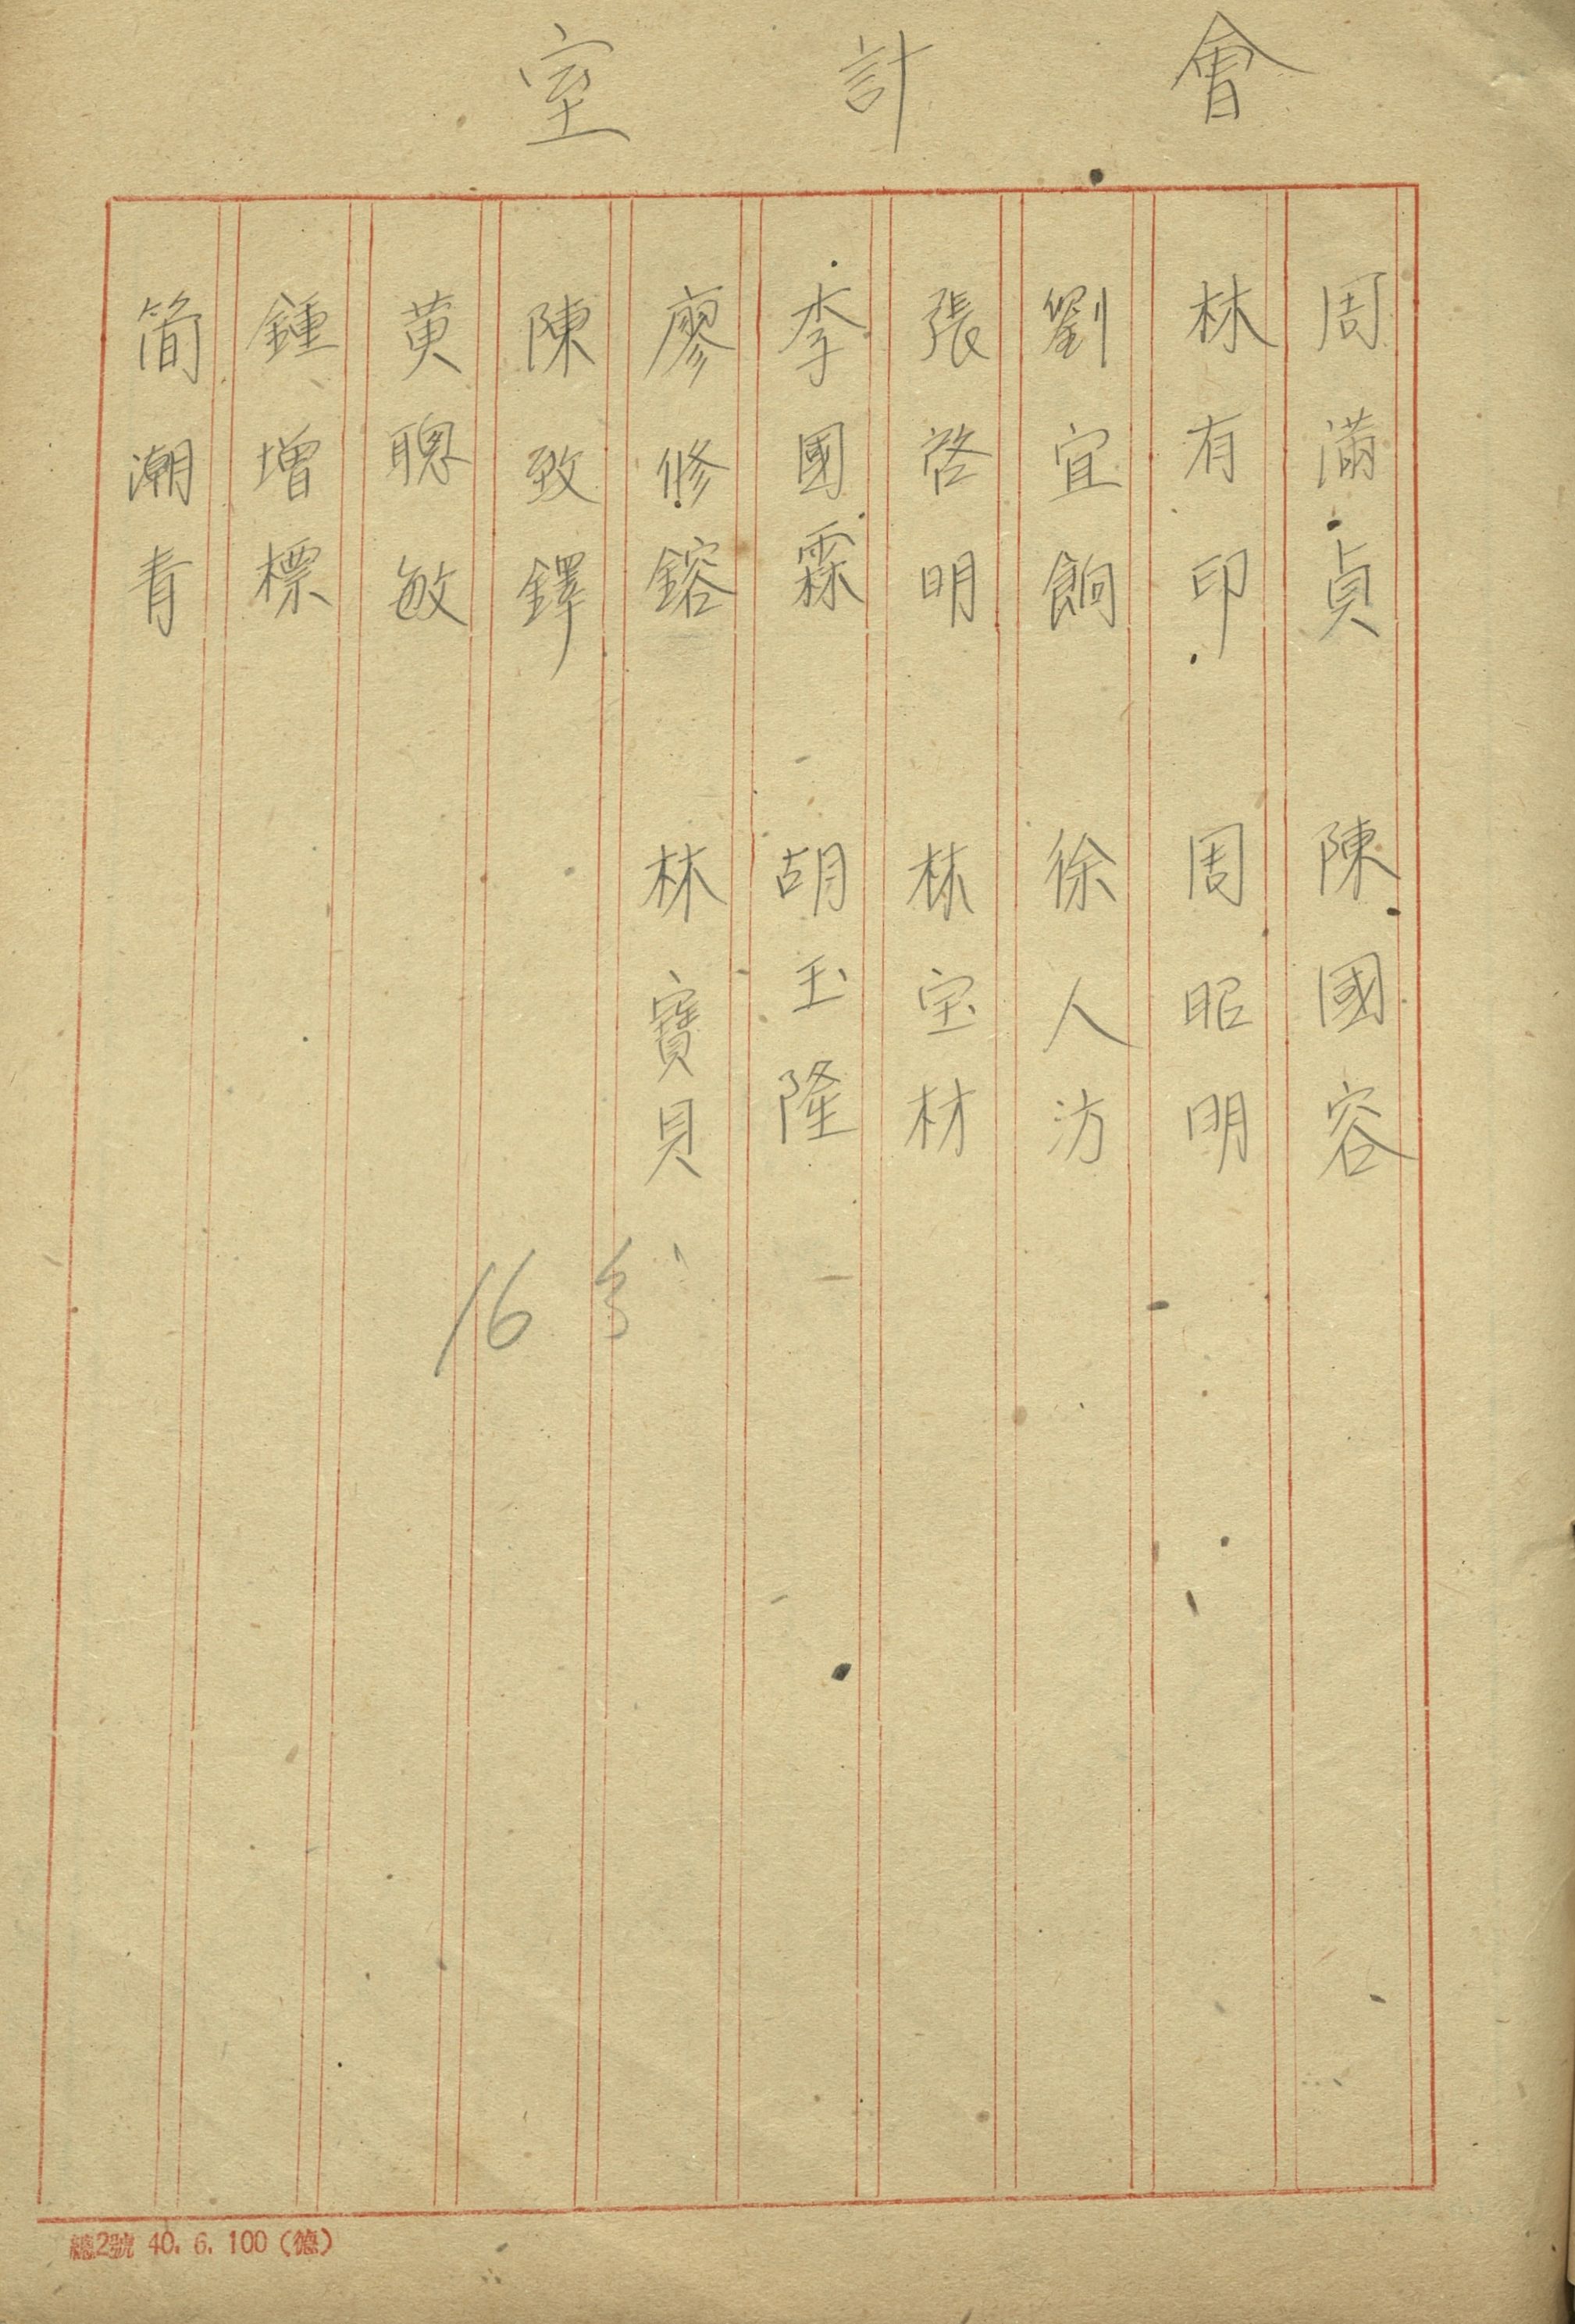 會計室
周滿貞　陳國容
林有印　周昭明
劉宜餉　徐人汸
張啓明　林宝材
李國霖　胡玉隆
廖修鎔　林寶貝
陳致鐸
黄聰敏
鍾增標
简潮青
16
總2號 40. 6. 100